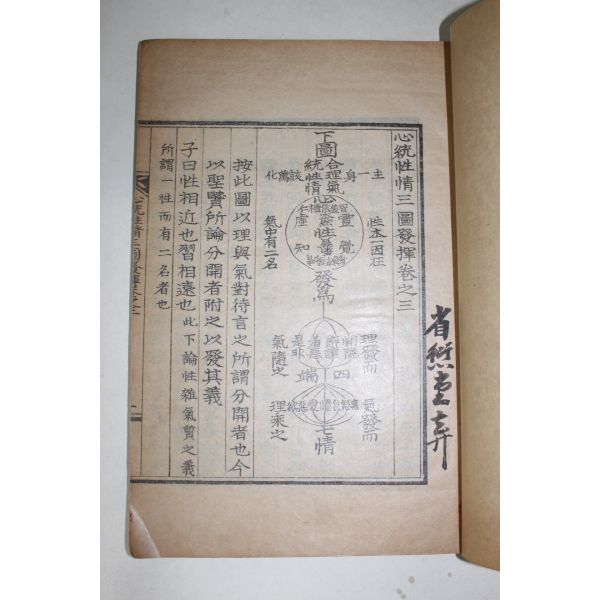 心統性情三圖發揮卷之三
下圖
合理氣
統性情
主一身
該萬化
性本一因在
氣中有二名
心
虛靈
知覺
性
發爲
四端
理發而
氣隨之
惻隱
辭讓
羞惡
是非
七情
氣發而
理乘之
按此圖以理與氣對待言之所謂分開者也今
以聖賢所論分開者附之以發其義
子曰性相近也習相遠也此下論性雜氣質之義
所謂一性而有二名者也
心統性情三圖發揮卷之三
省愆堂弆